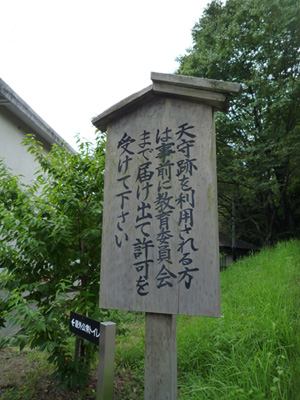 天守跡を利用される方
は事前に教育委員会
まで届け出て許可を
受けて下さい
←屋外公衆トイレ